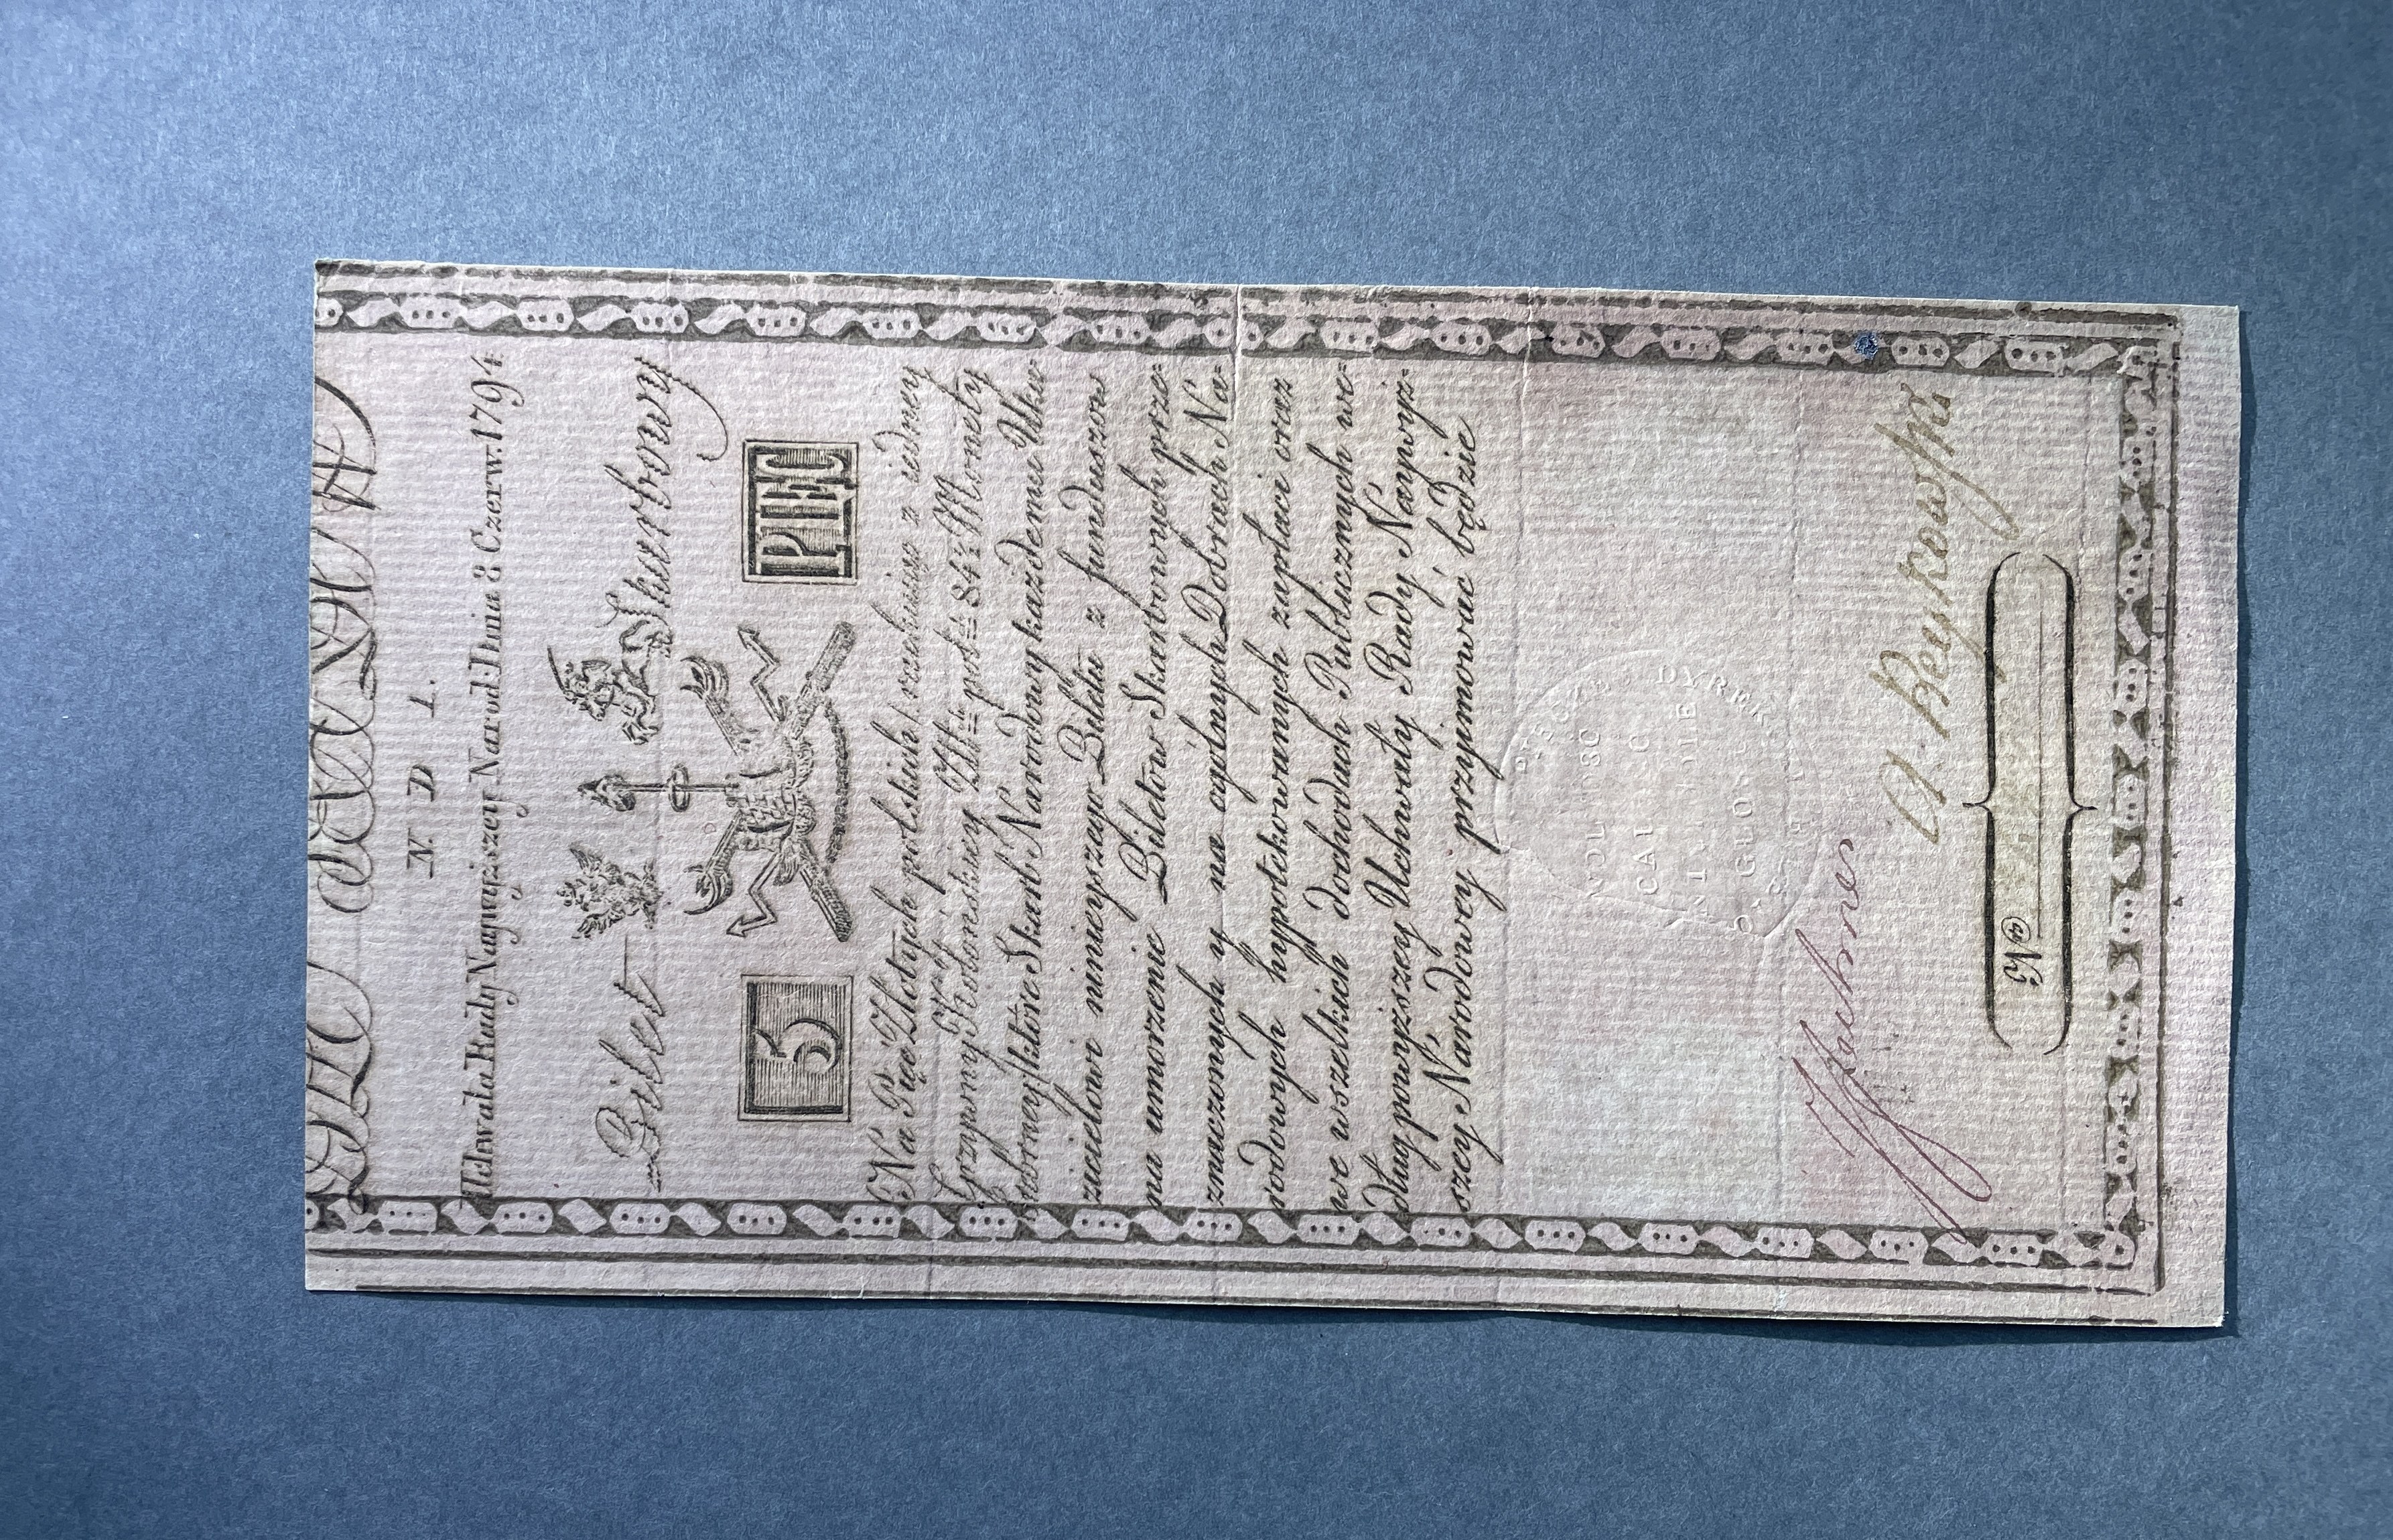 N. D 1.
Uchwała Rady Naywyższey Narod: Dnia 8 Czerw. 1794
Bilet Skarbowy
5 PIĘĆ
Na Pięć Złotych polskich rachuiąc z iedney
Grzywny Kolońskiey Zł: pol: 84½ Monety
które Skarb Narodowy każdemu Oka-
zicielowi ninieyszego Biletu z funduszow
na umorzenie Biletow Skarbowych prze-
znaczonych y na ogólnych Dobrach Na-
rodowych hypotekowanych zapłaci oraz
we wszelkich dochodach Publicznych we-
dług powyższey Uchwały Rady Naywyż-
szey Narodowey przyimować będzie
WOLNOSC
CAŁOSC
A. Reyskowski
N<sup>ro</sup>